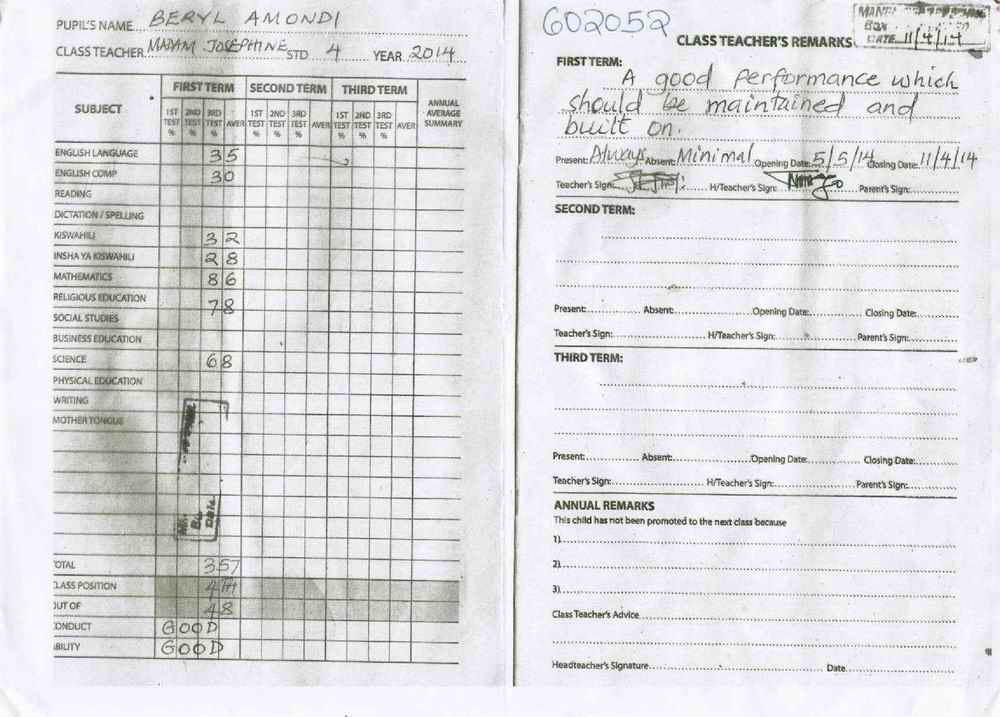 PUPIL'S NAME BERYL AMONDI
CLASS TEACHER MADAM JOSEPHINE STD 4 YEAR 2014
SUBJECT FIRST TERM SECOND TERM THIRD TERM ANNUAL AVERAGE SUMMARY
1ST TEST % 2ND TEST % 3RD TEST % AVER 1ST TEST % 2ND TEST % 3RD TEST % AVER 1ST TEST % 2ND TEST % 3RD TEST % AVER
ENGLISH LANGUAGE 35
ENGLISH COMP 30
READING
DICTATION / SPELLING
KISWAHILI 32
INSHA YA KISWAHILI 28
MATHEMATICS 86
RELIGIOUS EDUCATION 78
SOCIAL STUDIES
BUSINESS EDUCATION
SCIENCE 68
PHYSICAL EDUCATION
WRITING
MOTHER TONGUE
OTAL 357
LASS POSITION 4TH
OUT OF 48
ONDUCT GOOD
BILITY GOOD
602052
BOX
DATE 11/4/14
CLASS TEACHER'S REMARKS
FIRST TERM:
A good performance which
should be maintained and
built on.
Present: Always Absent: Minimal Opening Date: 5/5/14 Closing Date: 11/4/14
Teacher's Sign: H/Teacher's Sign: Parent's Sign:
SECOND TERM:
Present: Absent: Opening Date: Closing Date:
Teacher's Sign: H/Teacher's Sign: Parent's Sign:
THIRD TERM:
Present: Absent: Opening Date: Closing Date:
Teacher's Sign: H/Teacher's Sign: Parent's Sign:
ANNUAL REMARKS
This child has not been promoted to the next class because
1)
2)
3)
Class Teacher's Advice
Headteacher's Signature Date